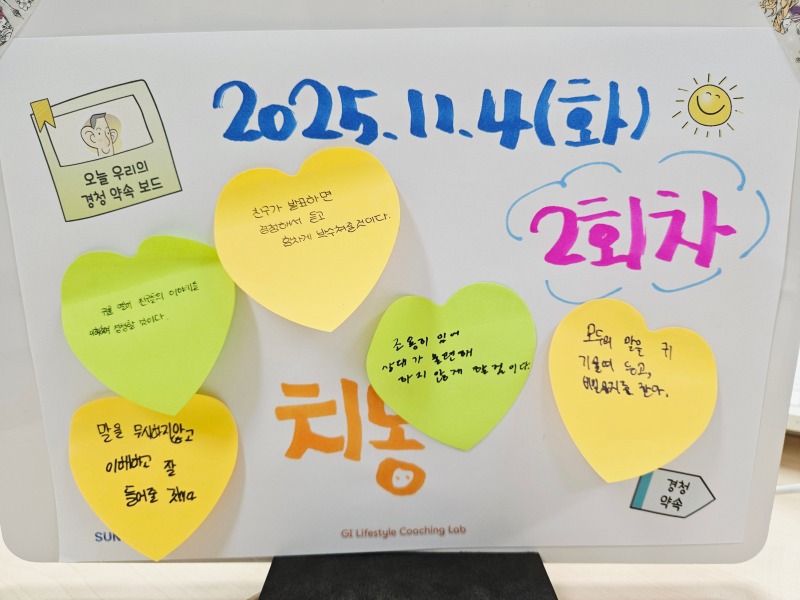 2025.11.4(화)
오늘 우리의
경청 약속 보드
2회차
친구가 발표하면
경청해서 듣고
힘차게 박수쳐줄것이다.
귀를 열어 친구들의 이야기를
경청할 것이다.
조용히 있어
상대가 불편해
하지 않게 할 것이다.
모두의 말을 귀
기울여 듣고,
말을 무시하지않고
이해하고 잘
들어줄
치동
경청
약속
SUN
GI Lifestyle Coaching Lab